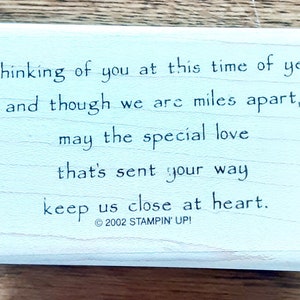 hinking of you at this time of ye
and though we are miles apart,
may the special love
that's sent your way
keep us close at heart.
© 2002 STAMPIN' UP!